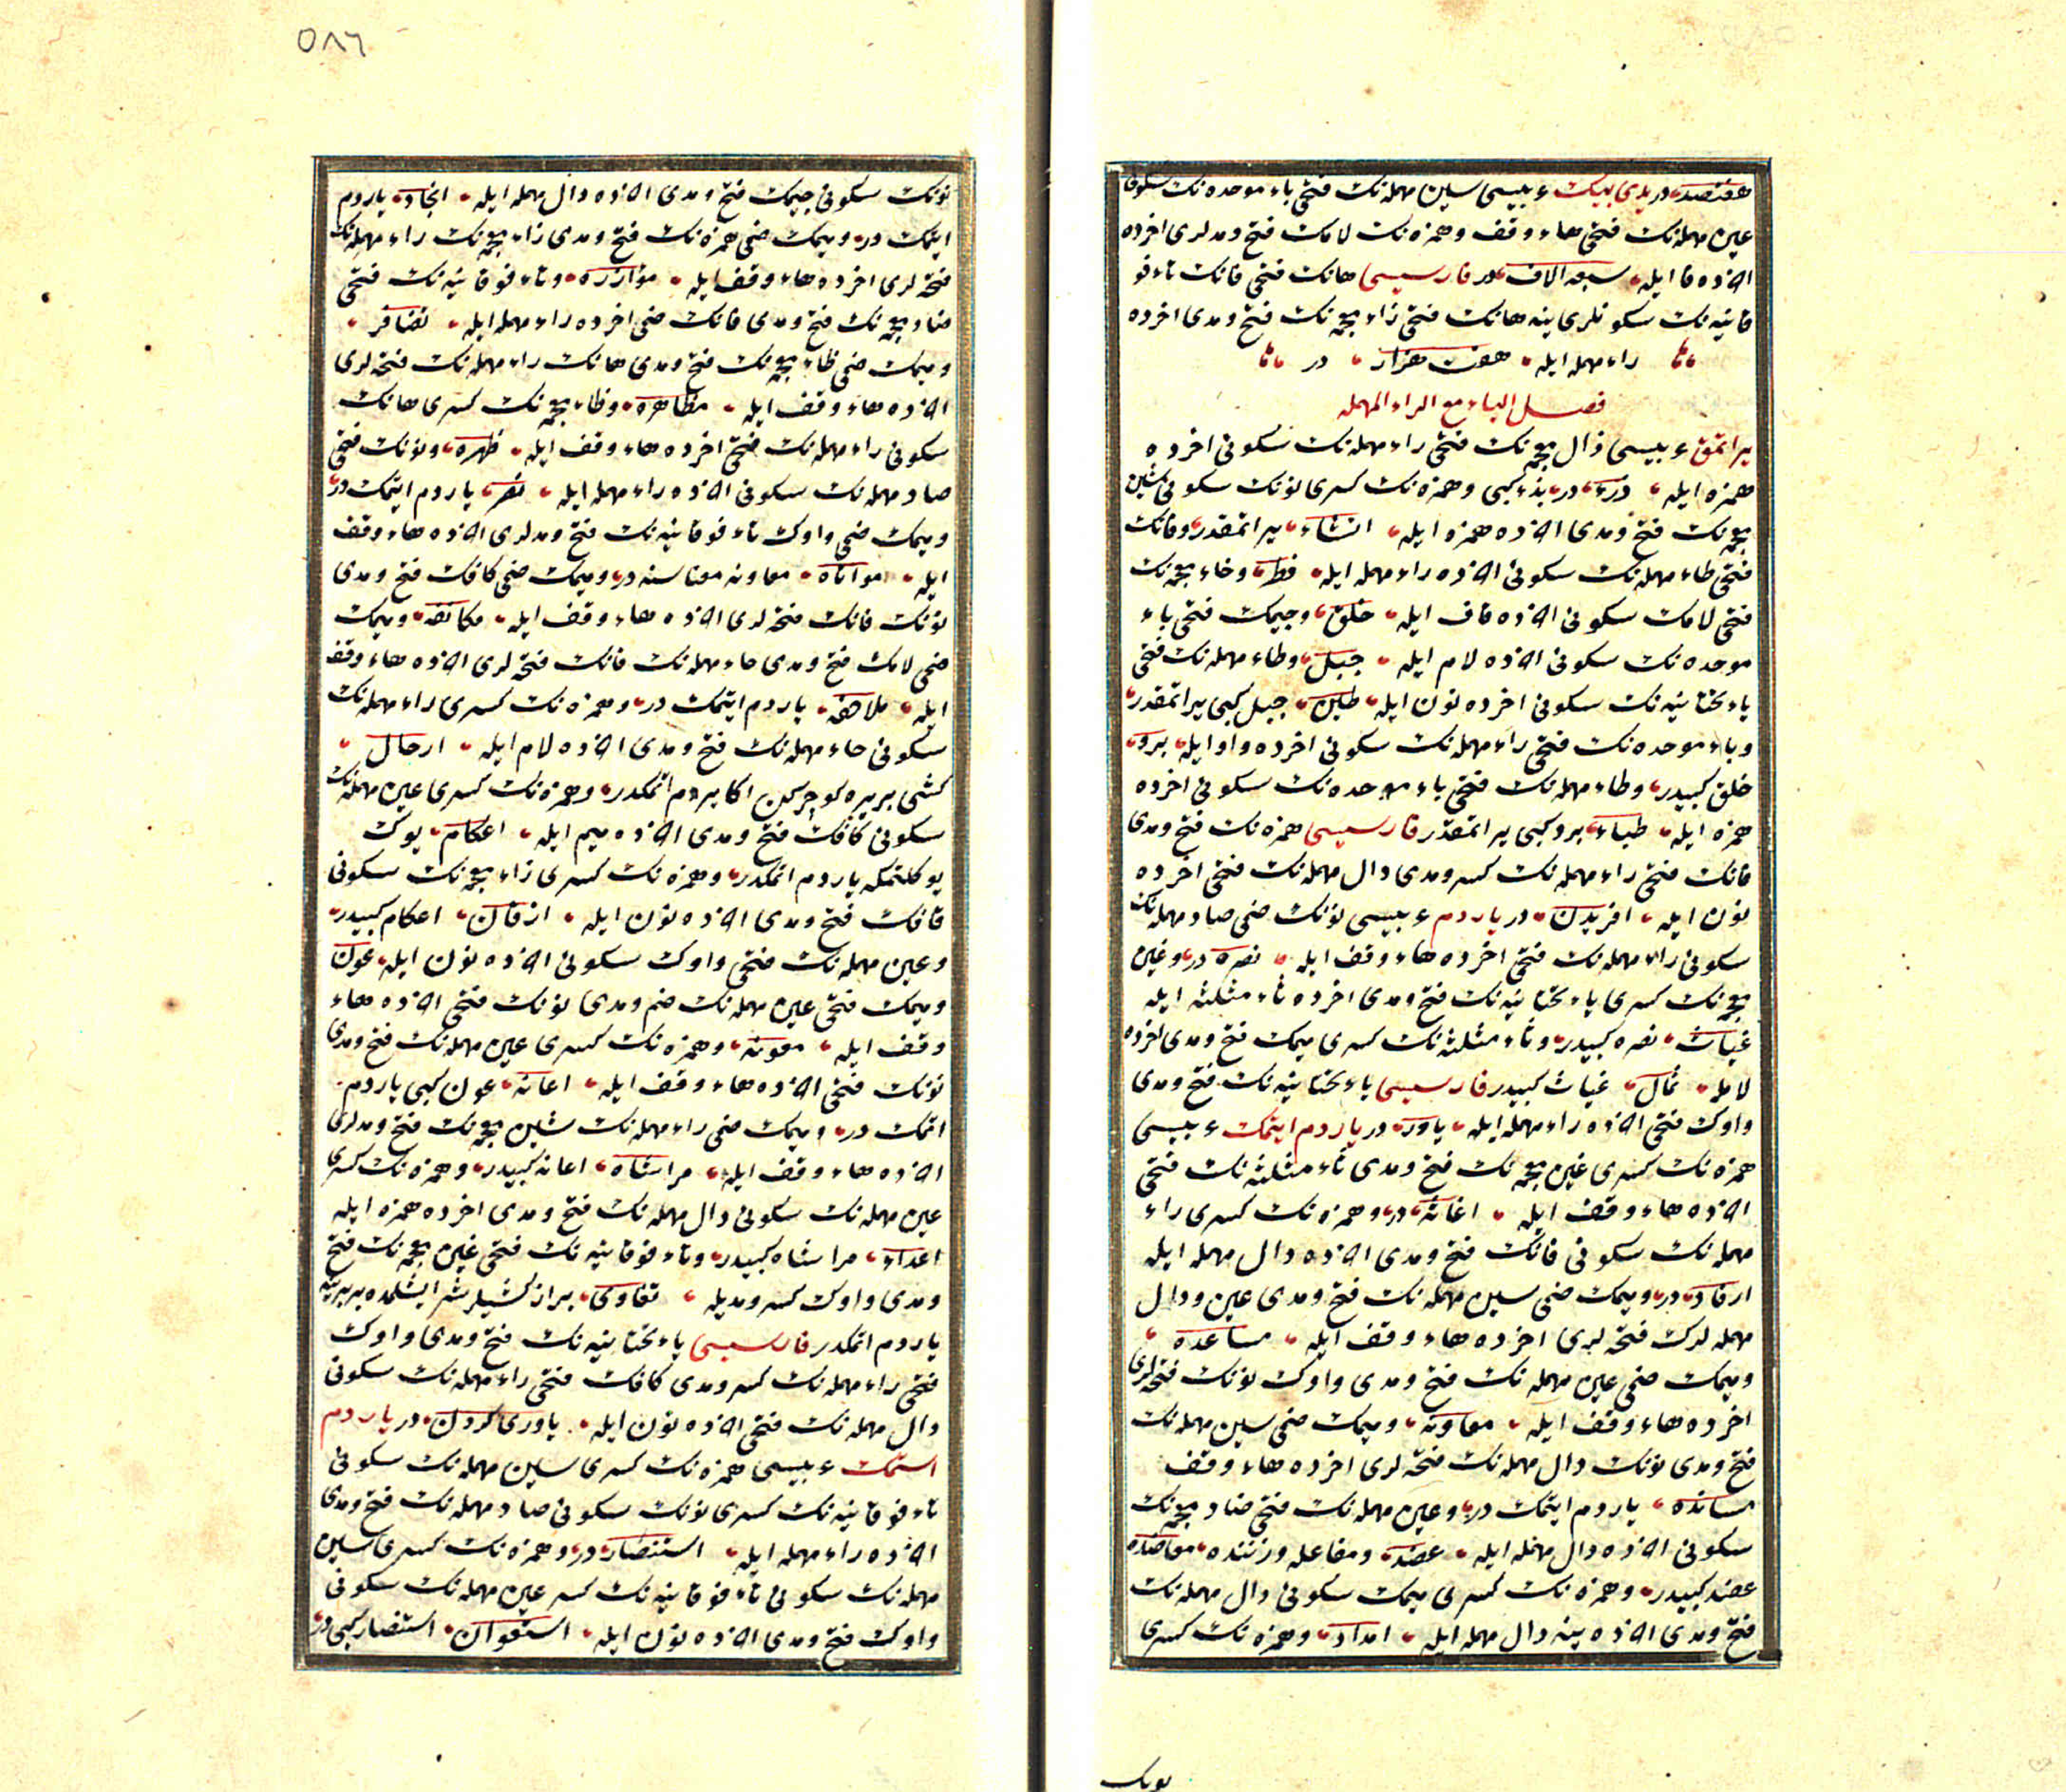 هفتصد در یدی بیک عربیسی سین مهمله‌نک فتحی باء موحده‌نک سکونی
عین مهمله‌نک فتحی هاء وقف وهمزه‌نک لامک فتح ومدلری اخرده
الاخرده فا ایله سبعه الاف در فارسیسی هانک فتحی فانک تاء فو
قانیه‌نک سکونلری ینه هانک فتحی زاء معجمه‌نک فتح ومدی اخرده
راء مهمله ایله هفت هزار در
فصل الیاء مع الراء المهمله
یراتمق عربیسی ذال معجمه‌نک فتحی راء مهمله‌نک سکونی اخرده
همزه ایله ذرء در بذء کبی وهمزه‌نک کسری نونک سکونی شین
معجمه‌نک فتح ومدی اخرده همزه ایله انشاء یراتمقدر وفانک
فتحی طاء مهمله‌نک سکونی اخرده راء مهمله ایله فطر وخاء معجمه‌نک
فتحی لامک سکونی اخرده قاف ایله خلق وجیمک فتحی باء
موحده‌نک سکونی اخرده لام ایله جبل وطاء مهمله‌نک فتحی
یاء تحتانیه‌نک سکونی اخرده نون ایله طین جبل کبی یراتمقدر
وباء موحده‌نک فتحی راء مهمله‌نک سکونی اخرده واو ایله برو
خلق کبیدر وطاء مهمله‌نک فتحی باء موحده‌نک سکونی اخرده
همزه ایله طباء برو کبی یراتمقدر فارسیسی همزه‌نک فتح ومدی
فانک فتحی راء مهمله‌نک کسر ومدی دال مهمله‌نک فتحی اخرده
نون ایله افریدن در یاردم عربیسی نونک ضمی صاد مهمله‌نک
سکونی راء مهمله‌نک فتحی اخرده هاء وقف ایله نصره در وغین
معجمه‌نک کسری یاء تحتانیه‌نک فتح ومدی اخرده ثاء مثلثه ایله
غیاث نصره کبیدر وثاء مثلثه‌نک کسری میمک فتح ومدی اخرده
لامله ثمال غیاث کبیدر فارسیسی یاء تحتانیه‌نک فتح ومدی
واوک فتحی اخرده راء مهمله ایله یاور در یاردم ایتمک عربیسی
همزه‌نک کسری غین معجمه‌نک فتح ومدی ثاء مثلثه‌نک فتحی
اخرده هاء وقف ایله اغاثه در وهمزه‌نک کسری راء
مهمله‌نک سکونی فانک فتح ومدی اخرده دال مهمله ایله
ارفاد در ومیمک ضمی سین مهمله‌نک فتح ومدی عین ودال
مهمله‌لرک فتحه‌لری اخرده هاء وقف ایله مساعده
ومیمک ضمی عین مهمله‌نک فتح ومدی واوک نونک فتحه‌لری
اخرده هاء وقف ایله معاونه ومیمک ضمی سین مهمله‌نک
فتح ومدی نونک دال مهمله‌نک فتحه‌لری اخرده هاء وقف
مسانده یاردم ایتمک در وعین مهمله‌نک فتحی ضاد معجمه‌نک
سکونی اخرده دال مهمله ایله عضد ومفاعله وزننده معاضده
عضد کبیدر وهمزه‌نک کسری میمک سکونی دال مهمله‌نک
فتح ومدی اخرده ینه دال مهمله ایله امداد وهمزه‌نک کسری
نونک
٥٨٦
نونک سکونی جیمک فتح ومدی اخرده دال مهمله ایله انجاد یاردم
ایتمک در ومیمک ضمی همزه‌نک فتح ومدی زاء معجمه‌نک راء مهمله‌نک
فتحه‌لری اخرده هاء وقف ایله مؤازره وتاء فوقانیه‌نک فتحی
ضاد معجمه‌نک فتح ومدی فانک ضمی اخرده راء مهمله ایله تضافر
ومیمک ضمی ظاء معجمه‌نک فتح ومدی هانک راء مهمله‌نک فتحه‌لری
اخرده هاء وقف ایله مظاهره وظاء معجمه‌نک کسری هانک
سکونی راء مهمله‌نک فتحی اخرده هاء وقف ایله ظهره ونونک فتحی
صاد مهمله‌نک سکونی اخرده راء مهمله ایله نصر یاردم ایتمک در
ومیمک ضمی واوک تاء فوقانیه‌نک فتح ومدلری اخرده هاء وقف
ایله مواتاه معاونه معناسنه در ومیمک ضمی کافک فتح ومدی
نونک فانک فتحه‌لری اخرده هاء وقف ایله مکانفه ومیمک
ضمی لامک فتح ومدی حاء مهمله‌نک فانک فتحه‌لری اخرده هاء وقف
ایله ملاحفه یاردم ایتمک در وهمزه‌نک کسری راء مهمله‌نک
سکونی حاء مهمله‌نک فتح ومدی اخرده لام ایله ارحال
کشی بر یره کوچرکن اکا یردم اتمکدر وهمزه‌نک کسری عین مهمله‌نک
سکونی کافک فتح ومدی اخرده میم ایله اعکام یوک
یوکلتمکه یاردم اتمکدر وهمزه‌نک کسری زاء معجمه‌نک سکونی
قافک فتح ومدی اخرده نون ایله ازقان اعکام کبیدر
وعین مهمله‌نک فتحی واوک سکونی اخرده نون ایله عون
ومیمک فتحی عین مهمله‌نک ضم ومدی نونک فتحی اخرده هاء
وقف ایله معونه وهمزه‌نک کسری عین مهمله‌نک فتح ومدی
نونک فتحی اخرده هاء وقف ایله اعانه عون کبی یاردم
اتمک در ومیمک ضمی راء مهمله‌نک شین معجمه‌نک فتح ومدلری
اخرده هاء وقف ایله مراشاه اعانه کبیدر وهمزه‌نک کسری
عین مهمله‌نک سکونی دال مهمله‌نک فتح ومدی اخرده همزه ایله
اعداء مراشاه کبیدر وتاء فوقانیه‌نک فتحی غین معجمه‌نک فتح
ومدی واوک کسر ومدیله تغاوی براز کشیلر شر ایشلمده بربرینه
یاردم اتمکدر فارسیسی یاء تحتانیه‌نک فتح ومدی واوک
فتحی راء مهمله‌نک کسر ومدی کافک فتحی راء مهمله‌نک سکونی
دال مهمله‌نک فتحی اخرده نون ایله یاوری کردن در یاردم
استمک عربیسی همزه‌نک کسری سین مهمله‌نک سکونی
تاء فوقانیه‌نک کسری نونک سکونی صاد مهمله‌نک فتح ومدی
اخرده راء مهمله ایله استنصار در وهمزه‌نک کسری سین
مهمله‌نک سکونی تاء فوقانیه‌نک کسر عین مهمله‌نک سکونی
واوک فتح ومدی اخرده نون ایله استعوان استنصار کبی در